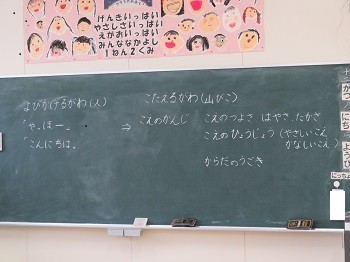 げんきいっぱい
やさしさいっぱい
えがおいっぱい
みんななかよし
1ねん2くみ
よびかけるがわ(人)
「や、ほー。
「こんにちは。
⇒
こたえるがわ(山びこ)
こえのかんじ こえのつよさ はやさ、たかさ
こえのひょうじょう(やさしいこえ
かなしいこえ)
からだのうごき
十
がつ
にち
ようび
にっちょ